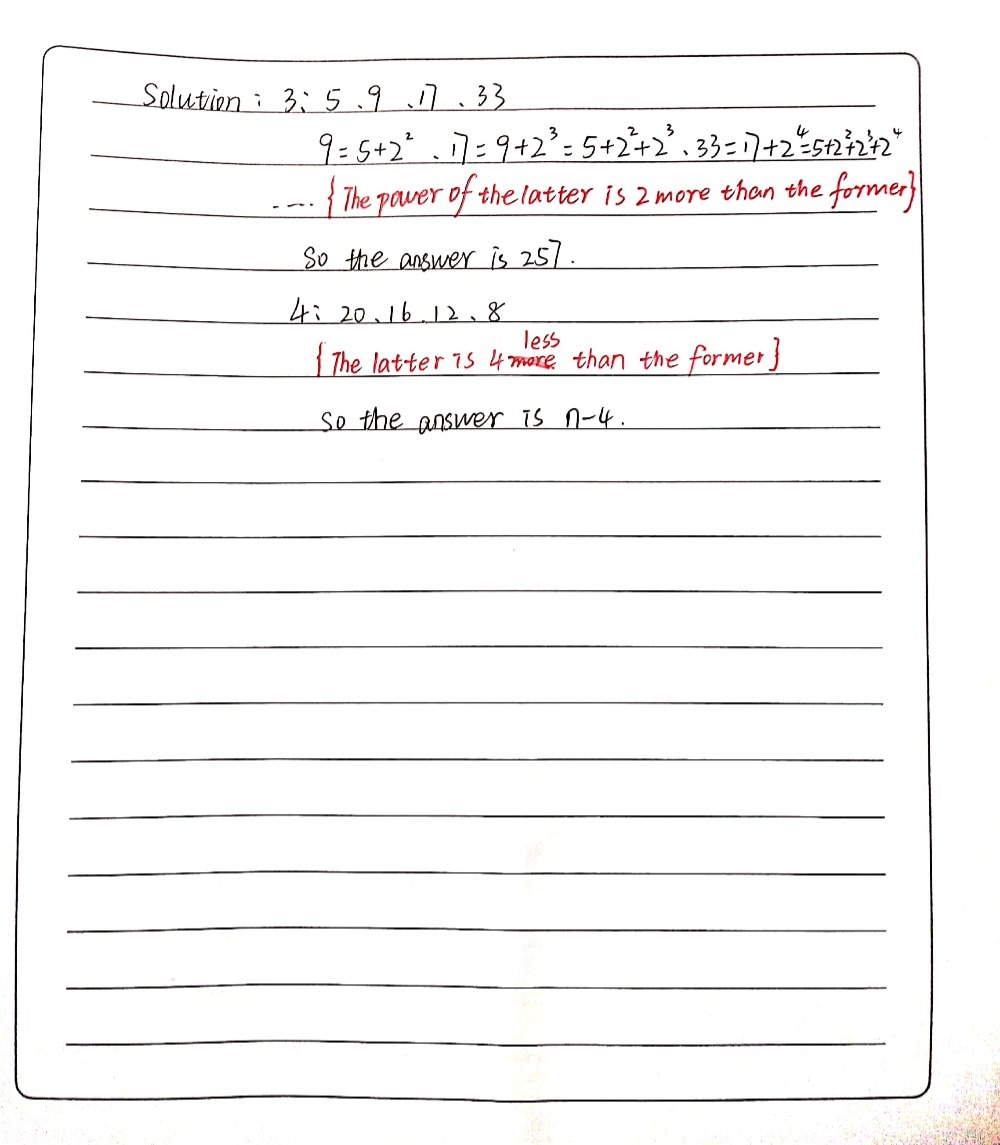 Solution: 3: 5、9、17、33
9=5+2²、17=9+2³=5+2²+2³、33=17+2⁴=5+2²+2³+2⁴
---- {The power of the latter is 2 more than the former}
So the answer is 257.
4: 20、16、12、8
less
{The latter is 4 more than the former}
So the answer is n-4.